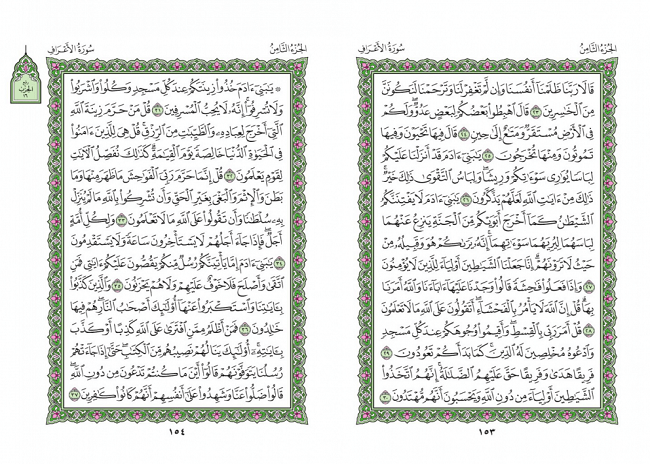 الجُزْءُ الثَّامِنُ
سُورَةُ الأَعْرَافِ
قَالَا رَبَّنَا ظَلَمْنَآ أَنفُسَنَا وَإِن لَّمْ تَغْفِرْ لَنَا وَتَرْحَمْنَا لَنَكُونَنَّ
مِنَ ٱلْخَٰسِرِينَ ٢٣ قَالَ ٱهْبِطُوا۟ بَعْضُكُمْ لِبَعْضٍ عَدُوٌّ ۖ وَلَكُمْ
فِى ٱلْأَرْضِ مُسْتَقَرٌّ وَمَتَٰعٌ إِلَىٰ حِينٍ ٢٤ قَالَ فِيهَا تَحْيَوْنَ وَفِيهَا
تَمُوتُونَ وَمِنْهَا تُخْرَجُونَ ٢٥ يَٰبَنِىٓ ءَادَمَ قَدْ أَنزَلْنَا عَلَيْكُمْ
لِبَاسًا يُوَٰرِى سَوْءَٰتِكُمْ وَرِيشًا ۖ وَلِبَاسُ ٱلتَّقْوَىٰ ذَٰلِكَ خَيْرٌ ۚ
ذَٰلِكَ مِنْ ءَايَٰتِ ٱللَّهِ لَعَلَّهُمْ يَذَّكَّرُونَ ٢٦ يَٰبَنِىٓ ءَادَمَ لَا يَفْتِنَنَّكُمُ
ٱلشَّيْطَٰنُ كَمَآ أَخْرَجَ أَبَوَيْكُم مِّنَ ٱلْجَنَّةِ يَنزِعُ عَنْهُمَا
لِبَاسَهُمَا لِيُرِيَهُمَا سَوْءَٰتِهِمَآ ۗ إِنَّهُۥ يَرَىٰكُمْ هُوَ وَقَبِيلُهُۥ مِنْ
حَيْثُ لَا تَرَوْنَهُمْ ۗ إِنَّا جَعَلْنَا ٱلشَّيَٰطِينَ أَوْلِيَآءَ لِلَّذِينَ لَا يُؤْمِنُونَ
٢٧ وَإِذَا فَعَلُوا۟ فَٰحِشَةً قَالُوا۟ وَجَدْنَا عَلَيْهَآ ءَابَآءَنَا وَٱللَّهُ أَمَرَنَا
بِهَا ۗ قُلْ إِنَّ ٱللَّهَ لَا يَأْمُرُ بِٱلْفَحْشَآءِ ۖ أَتَقُولُونَ عَلَى ٱللَّهِ مَا لَا تَعْلَمُونَ
٢٨ قُلْ أَمَرَ رَبِّى بِٱلْقِسْطِ ۖ وَأَقِيمُوا۟ وُجُوهَكُمْ عِندَ كُلِّ مَسْجِدٍ
وَٱدْعُوهُ مُخْلِصِينَ لَهُ ٱلدِّينَ ۚ كَمَا بَدَأَكُمْ تَعُودُونَ ٢٩
فَرِيقًا هَدَىٰ وَفَرِيقًا حَقَّ عَلَيْهِمُ ٱلضَّلَٰلَةُ ۗ إِنَّهُمُ ٱتَّخَذُوا۟
ٱلشَّيَٰطِينَ أَوْلِيَآءَ مِن دُونِ ٱللَّهِ وَيَحْسَبُونَ أَنَّهُم مُّهْتَدُونَ ٣٠
١٥٣
الجُزْءُ الثَّامِنُ
سُورَةُ الأَعْرَافِ
۞ يَٰبَنِىٓ ءَادَمَ خُذُوا۟ زِينَتَكُمْ عِندَ كُلِّ مَسْجِدٍ وَكُلُوا۟ وَٱشْرَبُوا۟
وَلَا تُسْرِفُوٓا۟ ۚ إِنَّهُۥ لَا يُحِبُّ ٱلْمُسْرِفِينَ ٣١ قُلْ مَنْ حَرَّمَ زِينَةَ ٱللَّهِ
ٱلَّتِىٓ أَخْرَجَ لِعِبَادِهِۦ وَٱلطَّيِّبَٰتِ مِنَ ٱلرِّزْقِ ۚ قُلْ هِىَ لِلَّذِينَ ءَامَنُوا۟
فِى ٱلْحَيَوٰةِ ٱلدُّنْيَا خَالِصَةً يَوْمَ ٱلْقِيَٰمَةِ ۗ كَذَٰلِكَ نُفَصِّلُ ٱلْءَايَٰتِ
لِقَوْمٍ يَعْلَمُونَ ٣٢ قُلْ إِنَّمَا حَرَّمَ رَبِّىَ ٱلْفَوَٰحِشَ مَا ظَهَرَ مِنْهَا وَمَا
بَطَنَ وَٱلْإِثْمَ وَٱلْبَغْىَ بِغَيْرِ ٱلْحَقِّ وَأَن تُشْرِكُوا۟ بِٱللَّهِ مَا لَمْ يُنَزِّلْ
بِهِۦ سُلْطَٰنًا وَأَن تَقُولُوا۟ عَلَى ٱللَّهِ مَا لَا تَعْلَمُونَ ٣٣ وَلِكُلِّ أُمَّةٍ
أَجَلٌ ۖ فَإِذَا جَآءَ أَجَلُهُمْ لَا يَسْتَأْخِرُونَ سَاعَةً ۖ وَلَا يَسْتَقْدِمُونَ
٣٤ يَٰبَنِىٓ ءَادَمَ إِمَّا يَأْتِيَنَّكُمْ رُسُلٌ مِّنكُمْ يَقُصُّونَ عَلَيْكُمْ ءَايَٰتِى ۙ فَمَنِ
ٱتَّقَىٰ وَأَصْلَحَ فَلَا خَوْفٌ عَلَيْهِمْ وَلَا هُمْ يَحْزَنُونَ ٣٥ وَٱلَّذِينَ كَذَّبُوا۟
بِـَٔايَٰتِنَا وَٱسْتَكْبَرُوا۟ عَنْهَآ أُو۟لَٰٓئِكَ أَصْحَٰبُ ٱلنَّارِ ۖ هُمْ فِيهَا
خَٰلِدُونَ ٣٦ فَمَنْ أَظْلَمُ مِمَّنِ ٱفْتَرَىٰ عَلَى ٱللَّهِ كَذِبًا أَوْ كَذَّبَ
بِـَٔايَٰتِهِۦٓ ۚ أُو۟لَٰٓئِكَ يَنَالُهُمْ نَصِيبُهُم مِّنَ ٱلْكِتَٰبِ ۖ حَتَّىٰٓ إِذَا جَآءَتْهُمْ
رُسُلُنَا يَتَوَفَّوْنَهُمْ قَالُوٓا۟ أَيْنَ مَا كُنتُمْ تَدْعُونَ مِن دُونِ ٱللَّهِ ۖ
قَالُوا۟ ضَلُّوا۟ عَنَّا وَشَهِدُوا۟ عَلَىٰٓ أَنفُسِهِمْ أَنَّهُمْ كَانُوا۟ كَٰفِرِينَ ٣٧
١٥٤